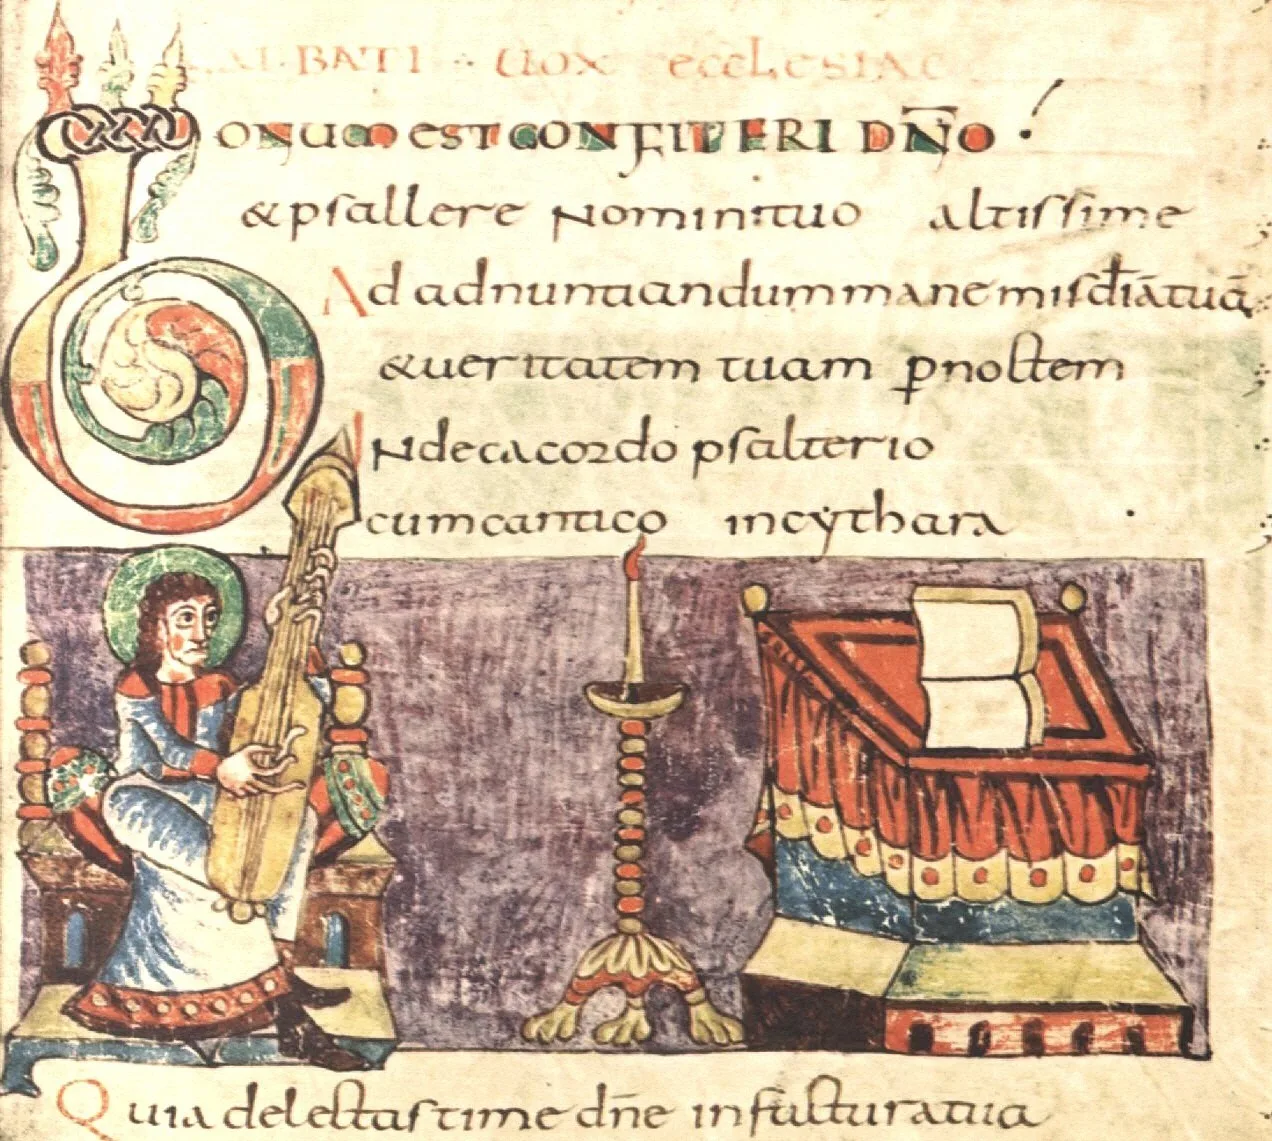 SABBATI ·:· UOX ecclesiae
BONUM EST CONFITERI DN̄O
& psallere nomini tuo altissime
Ad adnuntiandum mane misđiā tuā
& ueritatem tuam ꝑ noctem
IN decacordo psalterio
cum cantico in cẏthara
Quia delectasti me dn̄e in factura tua